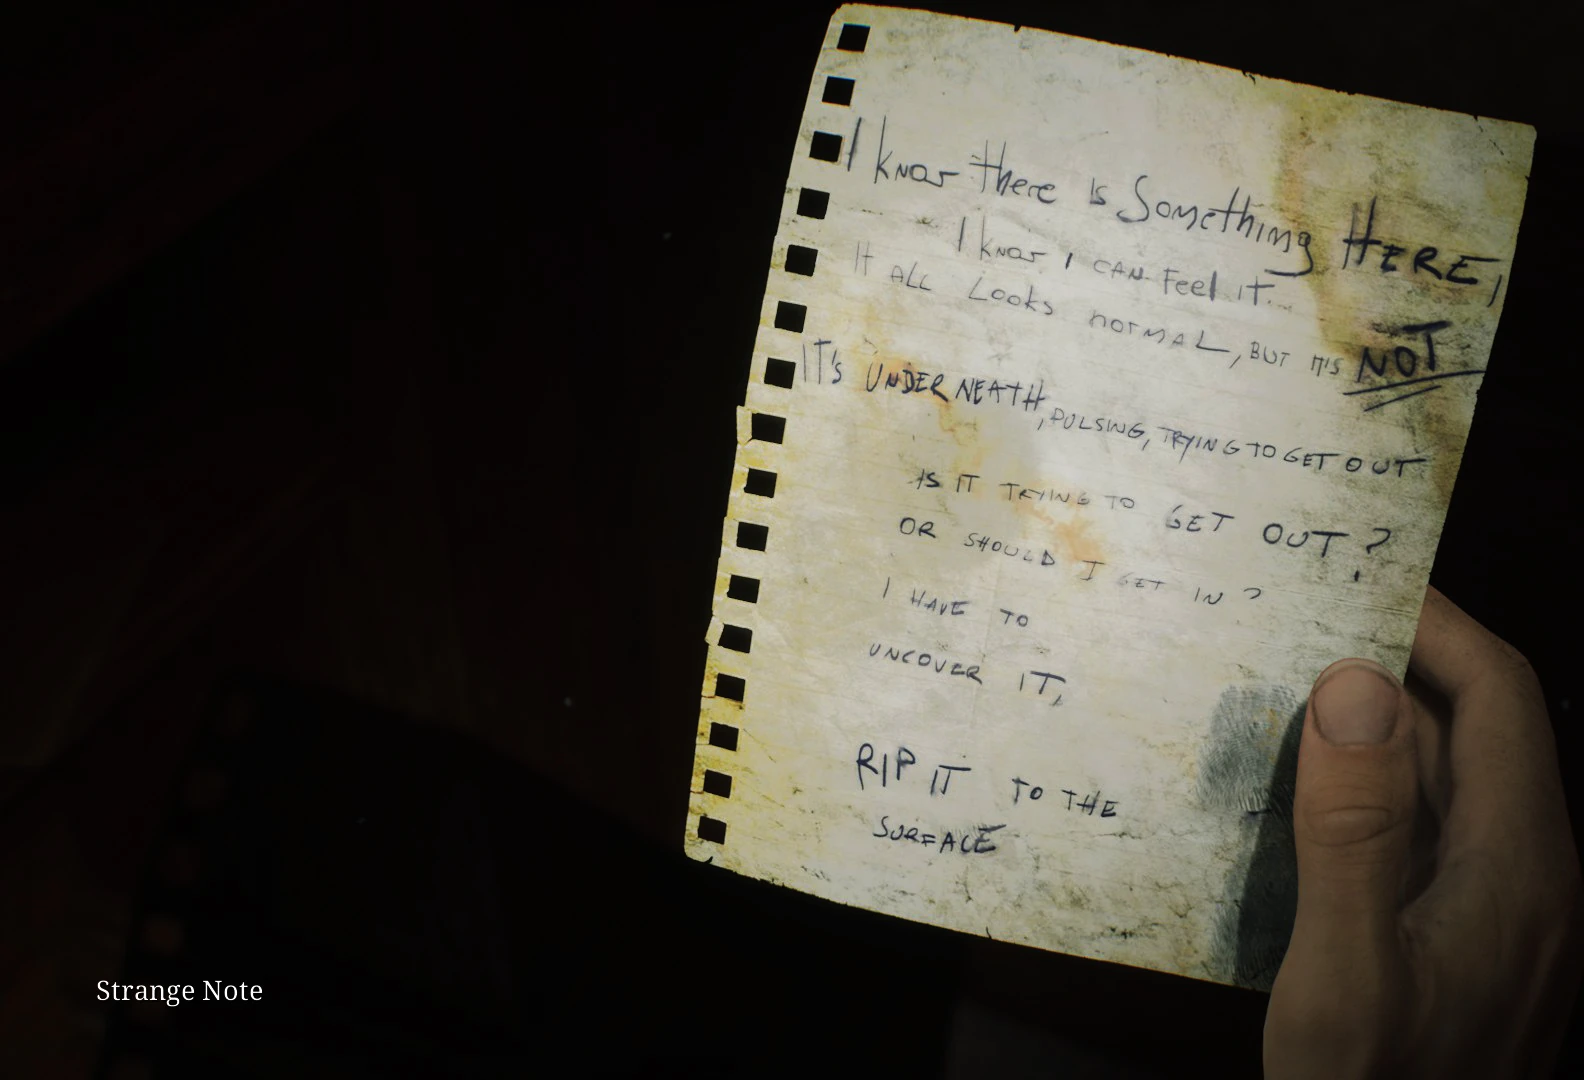 I know there is Something HERE,
I know I CAN Feel IT...
It ALL Looks normaL, BUT it's NOT
IT's UNDERNEATH, PULSING, TRYING TO GET OUT
IS IT TRYING TO GET OUT?
OR SHOULD I GET IN?
I HAVE TO
UNCOVER IT,
RIP IT TO THE
SURFACE
Strange Note